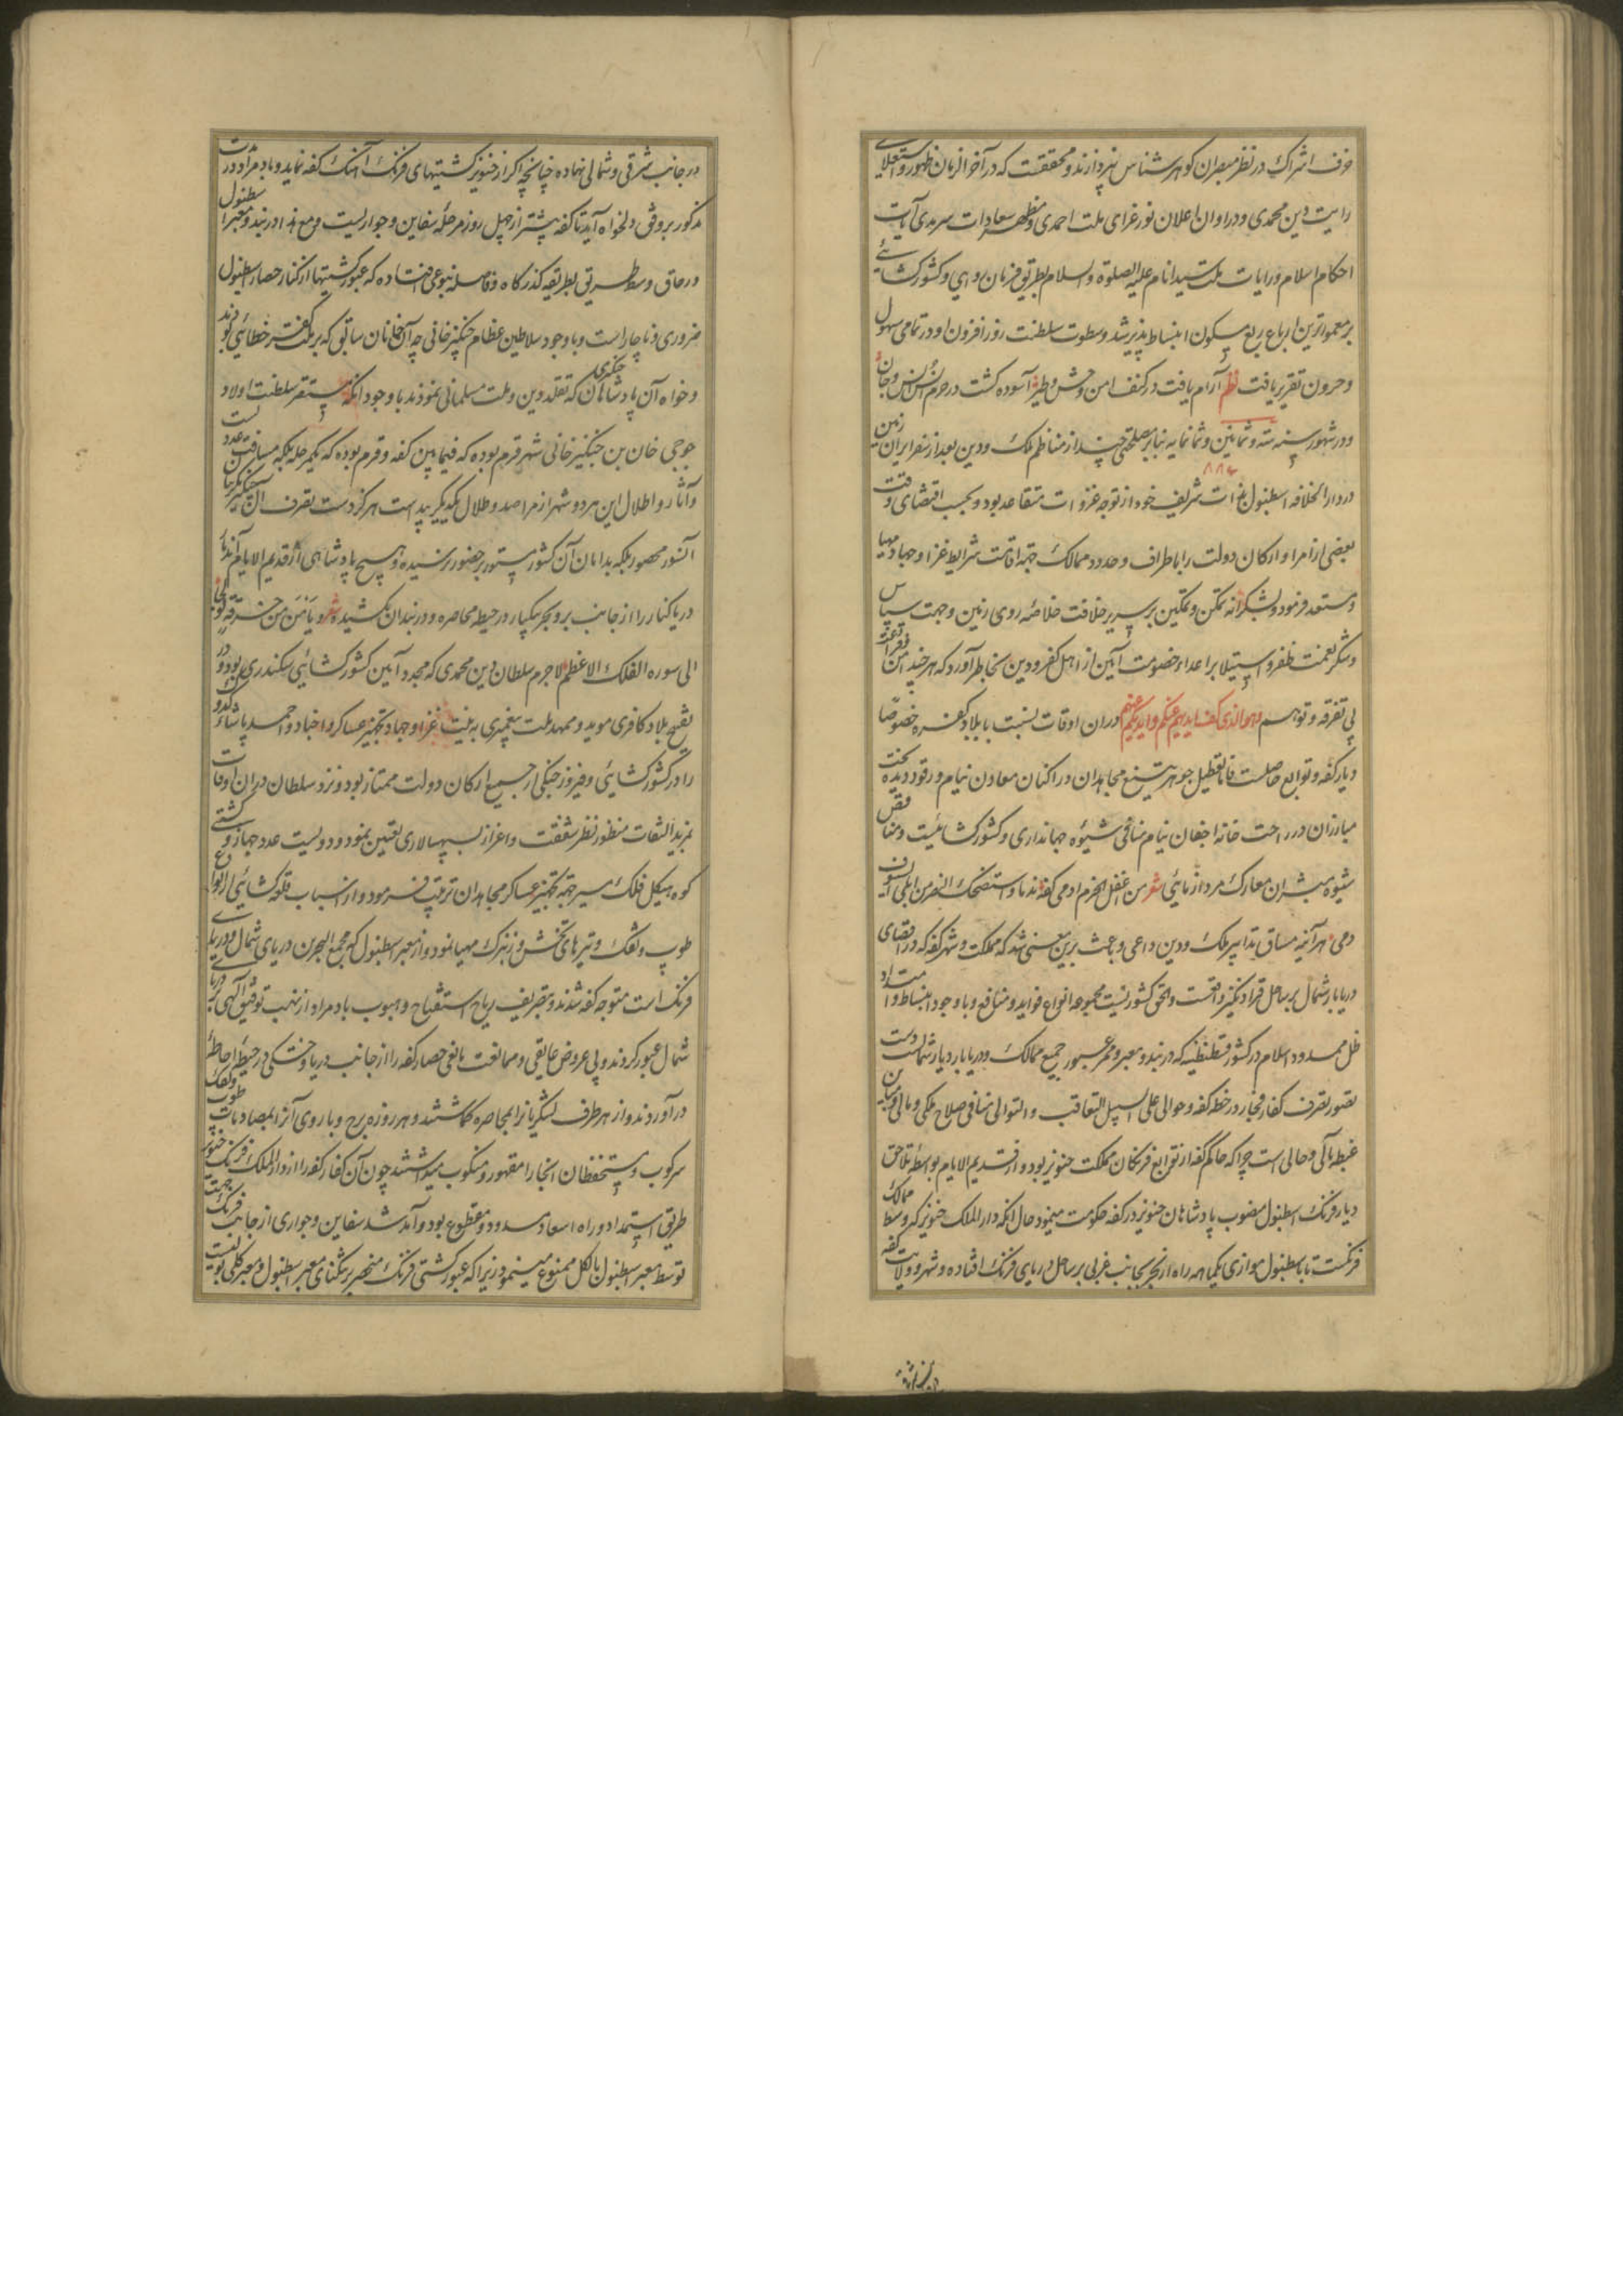 خزف اشراک در نظر مبصران کوهر شناس نپردازند و محققست که در آخر الزمان ظهور و استعلای
رایت دین محمدی و در اوان اعلان نور غرای ملت احمدی و مظهر سعادات سرمدی آیات
احکام اسلام و رایات ملت سید انام علیه الصلوة والسلام بطریق فرمان روایی و کشور کشائی
بر معمورترین ارباع ربع مسکون انبساط پذیر شد و سطوت سلطنت روز افزون او در تمامی سهول
و حزون تقریر یافت نظم آرام یافت در کنف امن وحش و طیر آسوده کشت در حرم انس و جان
و در شهور سنه سته و ثمانین و ثمانمایه بنابر مصلحتی چند از مناظم ملک و دین بعد از سفر ایران زمین
۸۸۶
در دار الخلافه اسطنبول ذات شریف خود از توجه غزوات متقاعد بود و بحسب اقتضای وقت
بعضی از امرا و ارکان دولت را باطراف و حدود ممالک جهة اقامت شرایط غزا و جهاد مهیا
و مستعد فرمود و بشکرانه تمکن و تمکین بر سریر خلافت خلاصه روی زمین و جهت سپاس
و شکر نعمت ظفر و استیلا بر اعداء خصومت آیین از اهل کفر و دین بخاطر آورد که هر چند امن
بی تفرقه و توهم وهو الذی کف ایدیهم عنکم و ایدیکم عنهم در ان اوقات بنسبت با بلاد کفره خصوصا
دیار کفه و توابع حاصلست فاما تعطیل جوهر تیغ مجاهدان در اکنان معادن نیام و رقود دیده بخت
مبارزان در راحت خانه اجفان نیام منافی شیوه جهانداری و کشور کشائیست و مناقض
شیوه مبشران معارک مرد آزمایی شعر من اغفل الحزم ادمی کفه ندما و استضحک النصر من ابکی السیوف
دمی هر آینه مساق تدابیر ملک و دین داعی و باعث برین معنی شد که مملکت و شهر کفه که در اقصای
دریابار شمال بر ساحل قرادنکیز واقعست و الحق کشوریست مجموعه انواع فواید و منافع و با وجود انبساط و امتداد
ظل ممدود اسلام در کشور قسطنطنیه که در بند و معبر و ممر عبور جمیع ممالک و دریابار دیار شمالست
تصور تصرف کفار فجار در خطه کفه و حوالی علی السبیل التعاقب و التوالی منافی صلاح ملکی و مالی و مباین
غبطه مآلی و حالی است چرا که حاکم کفه از توابع فرنکان مملکت جنویز بود و از قدیم الایام بواسطه تلاحق
دیار فرنک اسطنبول منصوب پادشاهان جنویز در کفه حکومت مینمود حال آنکه دار الملک جنویز که وسط ممالک
فرنکست تا باسطنبول موازی یکماهه راه از بحر بجانب غربی بر ساحل دریای فرنک افتاده و شهر و ولایت کفه
در جانب شرقی و شمالی نهاده چنانچه اکر از جنویز کشتیهای فرنک آهنک کفه نماید و باد مراد در
مذکور بر وفق دلخواه آید تا کفه پیشتر از چهل روز مرحله سفاین و جواریست و مع هذا در بند و معبر اسطنبول
در حاق وسط طریق بطریقه کذرکاه و فاصله بنوعی افتاده که عبور کشتیها از کنار حصار اسطنبول
ضروری و ناچار است و با وجود سلاطین عظام جنکیز خانی چه آن خانان سابق که بر ملت کفر خطائی بودند
و خواه آن پادشاهان جنکزی که تقلد دین و ملت مسلمانی نمودند با وجود آنکه مستقر سلطنت اولاد
جوجی خان بن جنکیز خانی شهر قرم بوده که فیمابین کفه و قرم بوده که یکمرحله بلکه مسافت
و آثار و اطلال این هر دو شهر از مراصد و طلال یکدیکر پیداست هرکز دست تصرف آل جنکیز بآن
النور محصور بلکه بدامان آن کشور مستور بحضور نرسیده و هیچ پادشاهی از قدیم الایام آن
دریا کنار را از جانب بر و بحر بیکبار در حیطه محاصره و در بندان نکشیده شعر
الی سوره الفلک الاعظم لاجرم سلطان دین محمدی که مجدد آیین کشور کشائی سکندری بود و در
فتح بلاد کافری موید و ممهد ملت پیغمبری به نیت غزا و جهاد و تجهیز عساکر و اجناد و احمد پاشا
را در کشور کشائی و فیروز جنکی از جمیع ارکان دولت ممتاز بود و نزد سلطان در ان اوقات
بمزید التفات منظور نظر شفقت و اعزاز بسپهسالاری تعیین نمود و دویست عدد جهاز و کشتی
کوه هیکل فلک سیر جهة تجهیز عساکر مجاهدان ترتیب فرمود و از اسباب قلعه کشائی از انواع
طوپ و تفنک و تیرهای تخش و زنبرک مهیا نمود و از معبر اسطنبول که مجمع البحرین دریای شمال و دریای
فرنک است متوجه کفه شدند و بتصریف ریاح استفتاح و هبوب باد مراد از مهب توفیق آلهی بدریای
شمال عبور کردند و بی عروض عایقی و ممانعت مانعی حصار کفه را از جانب دریا و خشکی در حیطه احاطه
در آوردند و از هر طرف لشکریانرا بمحاصره کماشتند و هر روزه برج و باروی آنرا بمصادمات طوپ و تفنک
سرکوب و مستحفظان آنجا را مقهور و منکوب میداشتند چون آن کفار کفه را از دار الملک فرنک جنویز
طریق استمداد و راه اسعاد مسدود و مقطوع بود و آمد شد سفاین و جواری از جانب فرنک جهت
توسط معبر اسطنبول بالکل ممنوع مینمود زیرا که عبور کشتی فرنک منحصر بر تنکنای معبر اسطنبول و معبر کلی